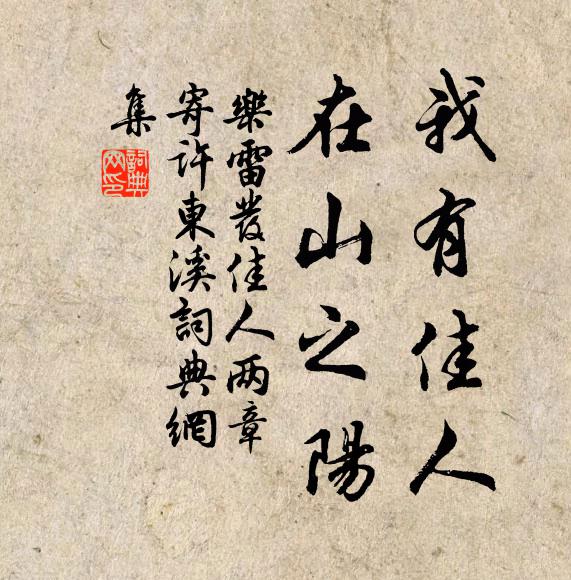 我有佳人
在山之陽
樂雷發佳人两章
寄許東溪詞典網
集
詞典網印